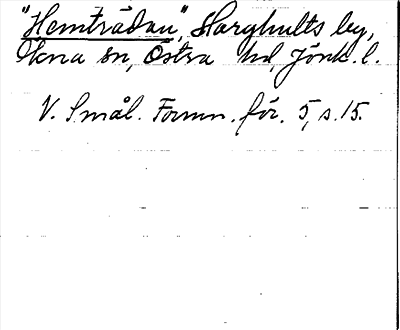 "Hemträdan", Harghults by,
Ökna sn, Östra hd, Jönk. l.
V. Smål. Fornm. för. 5, s. 15.